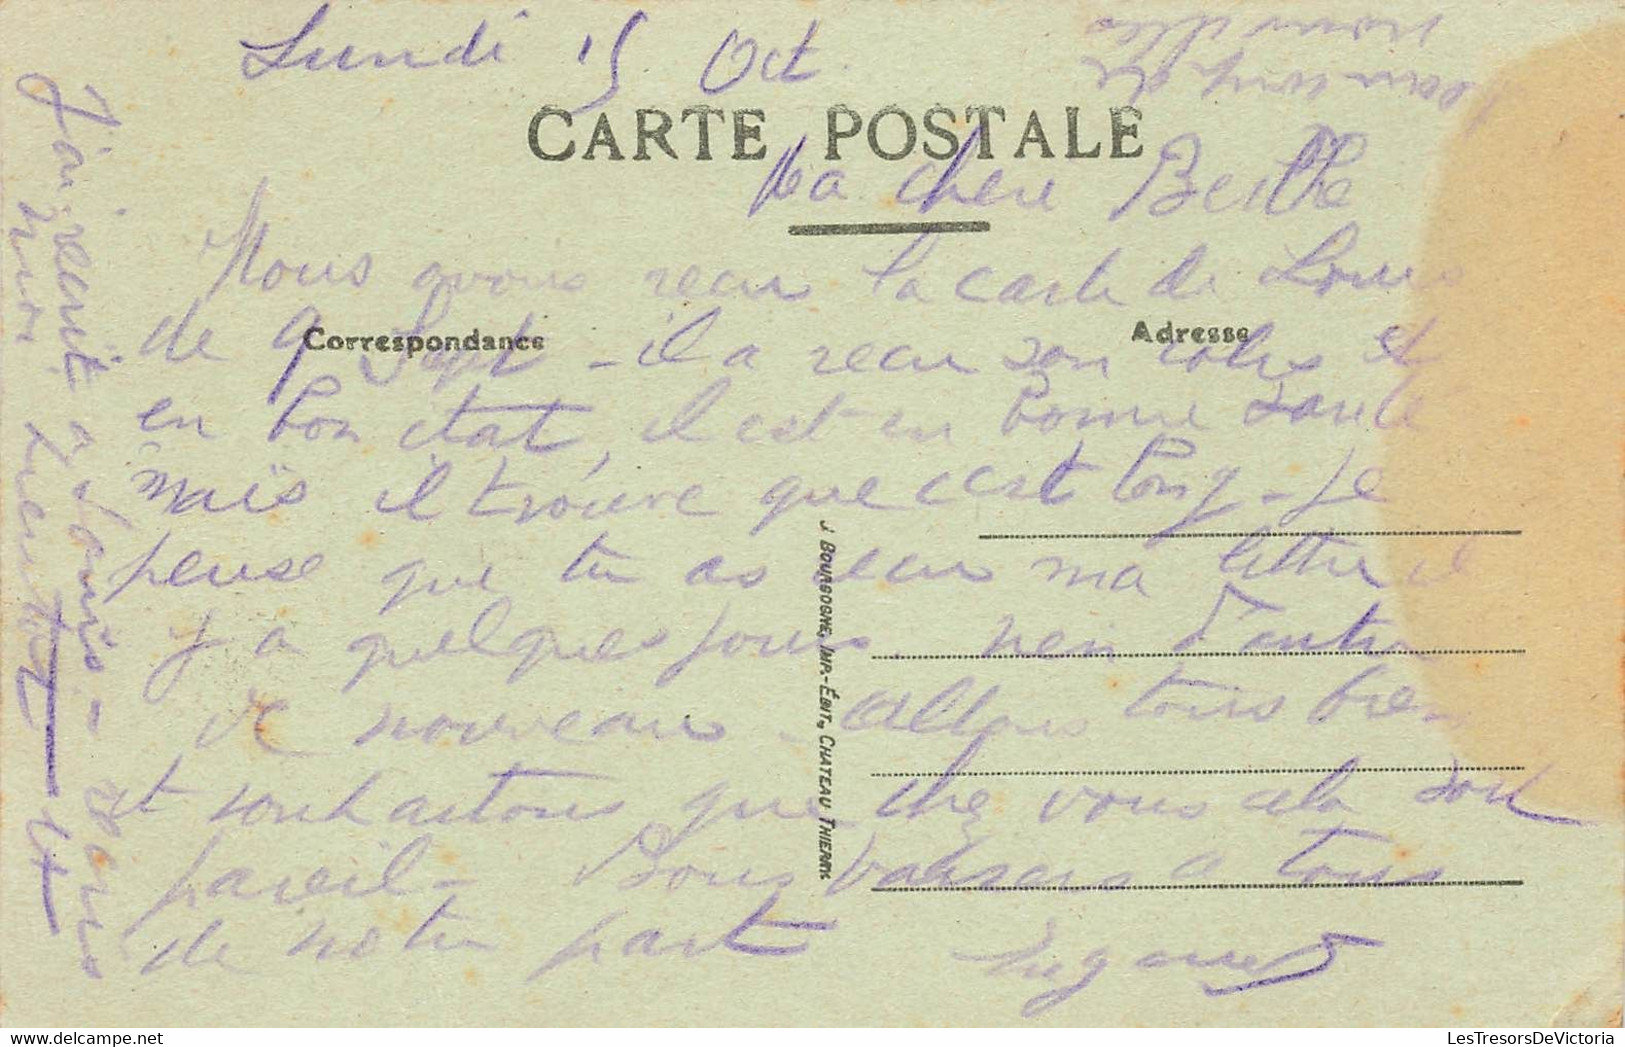 Lundi 15 Oct
CARTE POSTALE
Ma chere Berthe
Nous avons recu la carte de Louis
Correspondance
Adresse
de 9 Sept - il a recu son colis et
en bon état, il est en bonne santé
mais il trouve que cest long - Je
pense que tu as recu ma lettre il
y a quelques jours. rien d'autre
de nouveau - allons tous bien
et souhaitons que chez vous cela soit
pareil - Bons baisers a tous
de notre part
J'ai écrit a Louis -
J. BOURGOGNE, IMP.-ÉDIT., CHATEAU THIERRY
LesTresorsDeVictoria.com